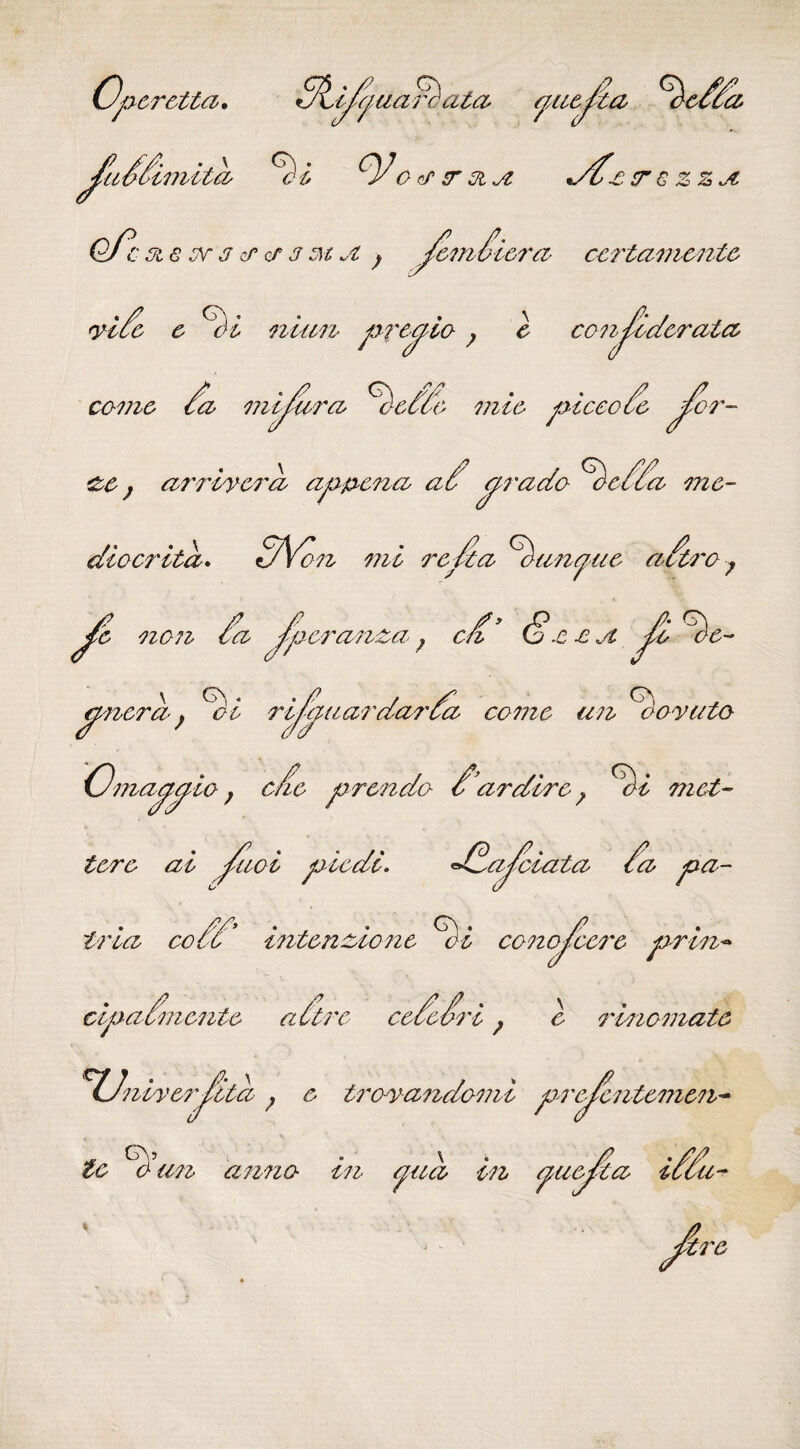 Operetta. Riſguardata queſta della
ſublimità di VOSTRA ALTEZZA
SERENISSIMA, ſembiera certamente
vile e di niun pregio, è conſiderata
come la miſura delle mie piccole for-
ze, arriverà appena al grado della me-
diocrità. Non mi reſta dunque altro,
ſe non la ſperanza, ch' ELLA ſi de-
gnerà, di riſguardarla come un dovuto
Omaggio, che prendo l'ardire, di met-
tere ai ſuoi piedi. Laſciata la pa-
tria coll' intenzione di conoſcere prin-
cipalmente altre celebri, è rinomate
Univerſità, e trovandomi preſentemen-
te d'un anno in quà in queſta illu-
ſtre